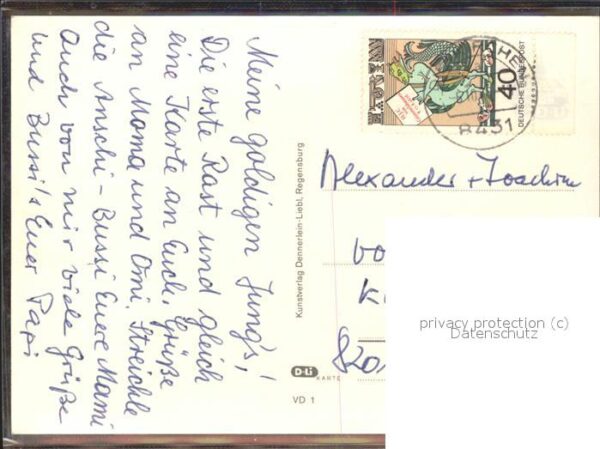 Meine goldigen Jung's!
Die erste Rast und gleich
eine Karte an Euch. Grüße
an Mama und Omi. Streichle
die Anschi - Bussi Euere Mami
Auch von mir viele Grüße
und Bussi's Euer Papi
Kunstverlag Dennerlein-Liebl, Regensburg
D-Li
KARTE
VD 1
40
DEUTSCHE BUNDESPOST
8431
Alexander + Joachim
820
privacy protection (c)
Datenschutz